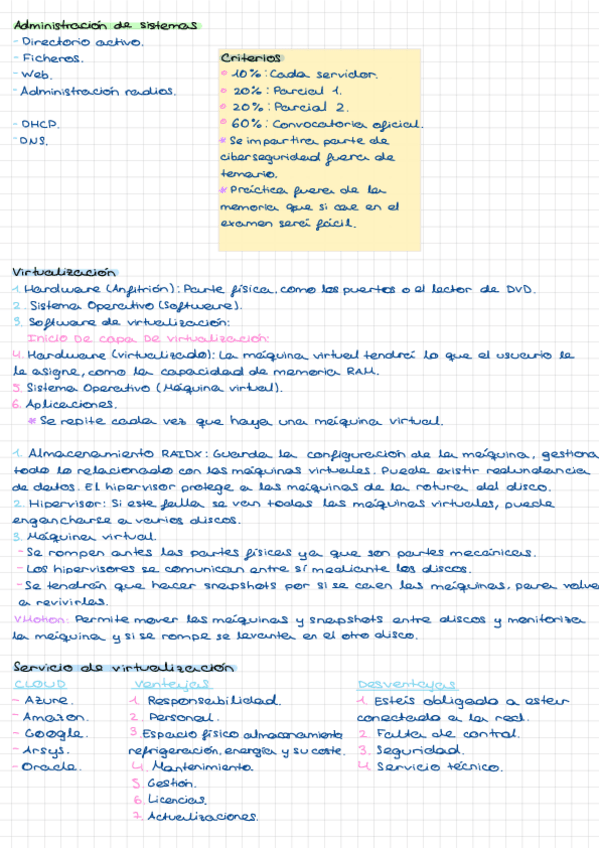 Administración de sistemas
- Directorio activo.
- Ficheros.
- Web.
- Administración radios.
- DHCP.
- DNS.
Criterios
• 10%: Cada servidor.
• 20%: Parcial 1.
• 20%: Parcial 2.
• 60%: Convocatoria oficial.
* Se impartira parte de
ciberseguridad fuera de
temario.
* Práctica fuera de la
memoria que si cae en el
examen será fácil.
Virtualización
1. Hardware (Anfitrión): Parte física, como los puertos o el lector de DVD.
2. Sistema Operativo (Software).
3. Software de virtualización:
Inicio De capa De virtualización:
4. Hardware (virtualizado): La máquina virtual tendrá lo que el usuario le
le asigne, como la capacidad de memoria RAM.
5. Sistema Operativo (Máquina virtual).
6. Aplicaciones.
* Se repite cada vez que haya una máquina virtual.
1. Almacenamiento RAIDX: Guarda la configuración de la máquina, gestiona
todo lo relacionado con las máquinas virtuales. Puede existir redundancia
de datos. El hipervisor protege a las máquinas de la rotura del disco.
2. Hipervisor: Si este falla se van todas las máquinas virtuales, puede
engancharse a varios discos.
3. Máquina virtual.
- Se rompen antes las partes físicas ya que son partes mecánicas.
- Los hipervisores se comunican entre sí mediante los discos.
- Se tendrán que hacer snapshots por si se caen las máquinas, para volve
a revivirlas.
VMotion: Permite mover las máquinas y snapshots entre discos y monitoriza
la máquina y si se rompe se levanta en el otro disco.
Servicio de virtualización
CLOUD
- Azure.
- Amazon.
- Google.
- Arsys.
- Oracle.
Ventajas
1. Responsabilidad.
2. Personal.
3. Espacio físico almacenamiento
refrigeración, energía y su coste.
4. Mantenimiento.
5. Gestión.
6. Licencias.
7. Actualizaciones.
Desventajas
1. Estás obligado a estar
conectado a la red.
2. Falta de control.
3. Seguridad.
4. Servicio técnico.